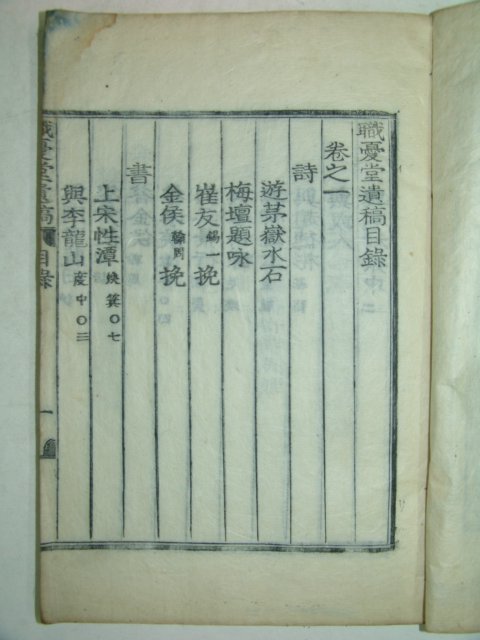 職憂堂遺稿目錄
卷之一
詩
遊茅嶽水石
梅壇題咏
崔友錫一挽
金侯挽
書
上宋性潭煥箕〇七
與李龍山度中〇三
職憂堂遺稿 目錄 一